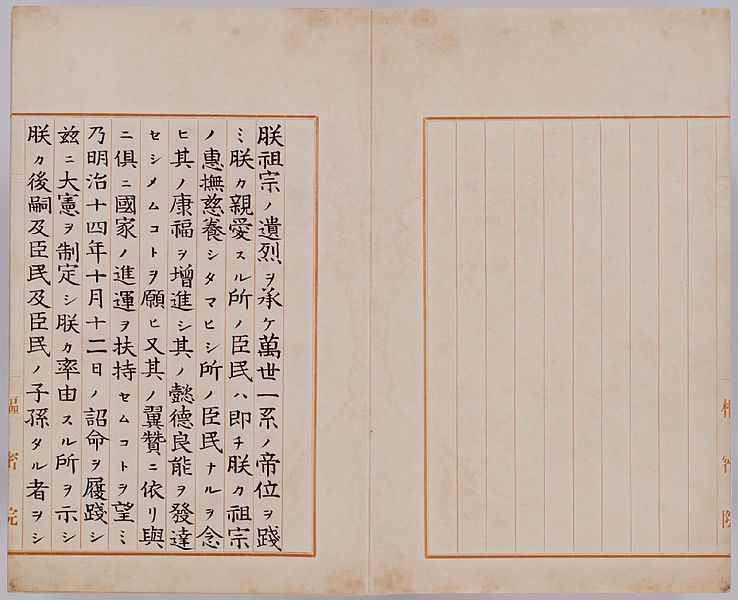 樞密院
朕祖宗ノ遺烈ヲ承ケ萬世一系ノ帝位ヲ踐
ミ朕カ親愛スル所ノ臣民ハ即チ朕カ祖宗
ノ惠撫慈養シタマヒシ所ノ臣民ナルヲ念
ヒ其ノ康福ヲ增進シ其ノ懿德良能ヲ發達
セシメムコトヲ願ヒ又其ノ翼贊ニ依リ與
ニ俱ニ國家ノ進運ヲ扶持セムコトヲ望ミ
乃明治十四年十月十二日ノ詔命ヲ履踐シ
茲ニ大憲ヲ制定シ朕カ率由スル所ヲ示シ
朕カ後嗣及臣民及臣民ノ子孫タル者ヲシ
樞密院